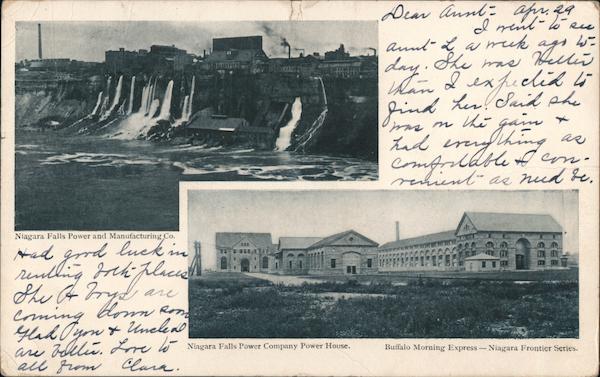 Dear Aunt- Apr. 29
I went to see
aunt L a week ago to-
day. She was better
than I expected to
find her. Said she
was on the gain +
had everything as
comfortable + con-
venient as need be.
Niagara Falls Power and Manufacturing Co.
Had good luck in
renting places
She & boys are
coming down soon
Glad you & Uncle
are better. Love to
all from Clara.
Niagara Falls Power Company Power House.
Buffalo Morning Express — Niagara Frontier Series.